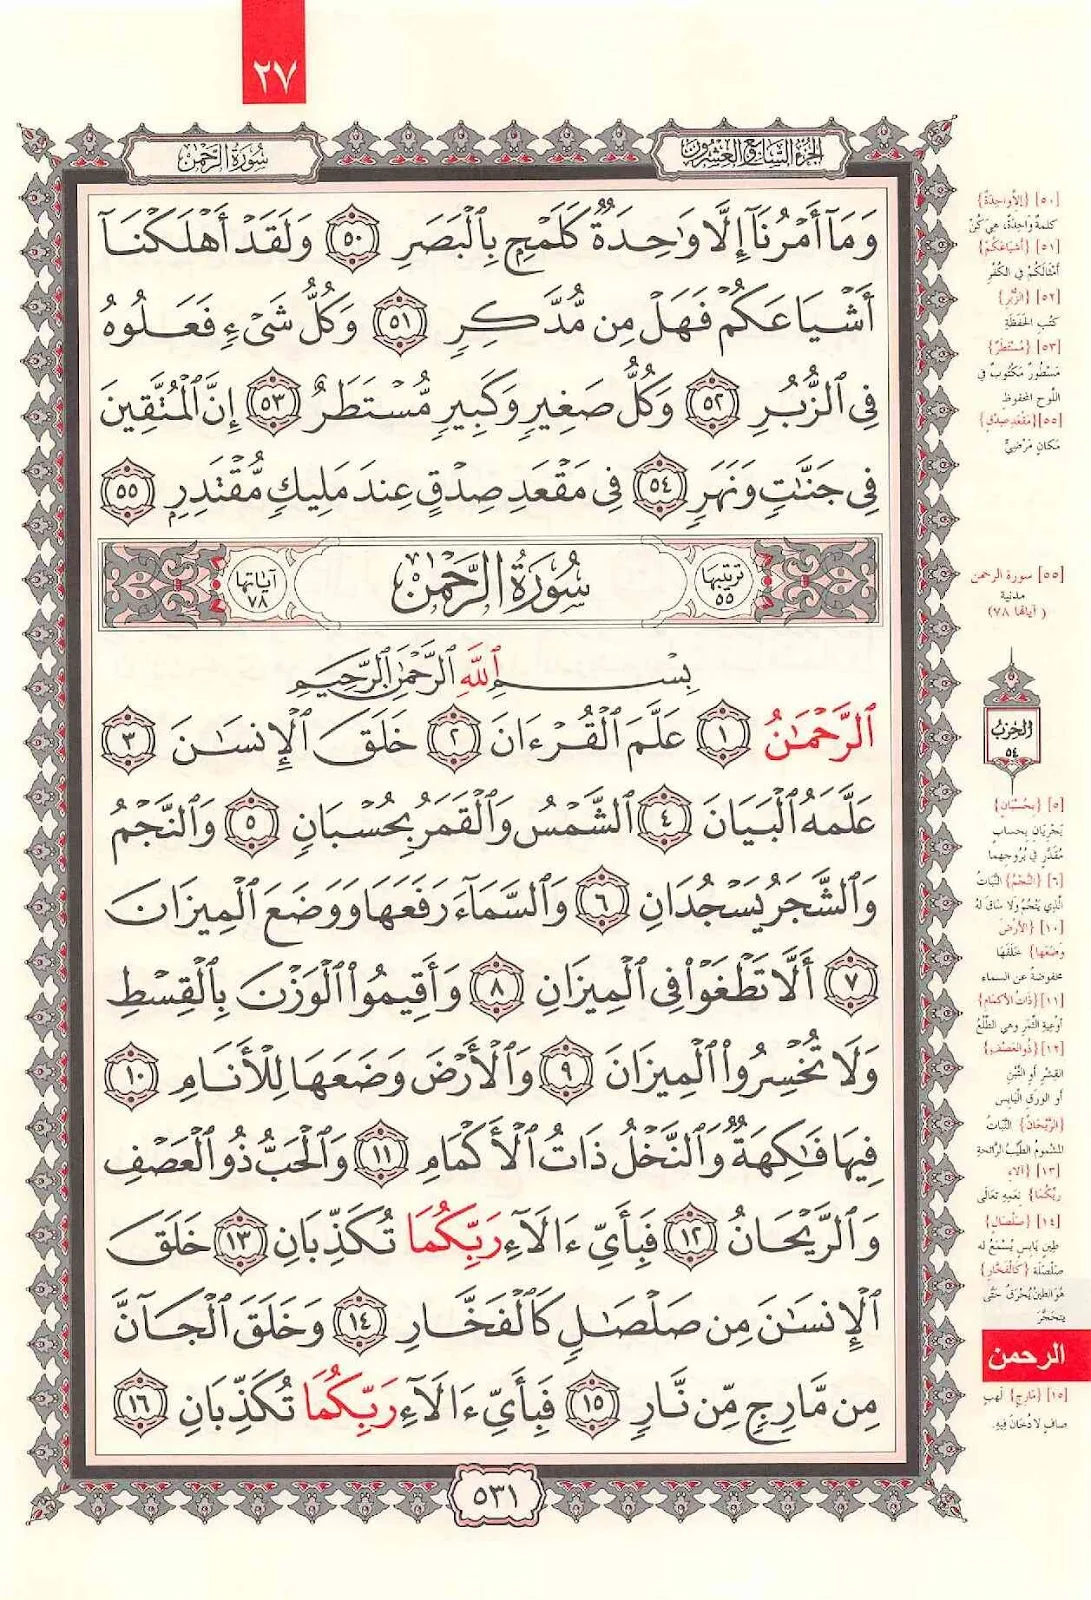 ٢٧
الجزء السابع والعشرون
سورة الرحمن
وَمَآ أَمْرُنَآ إِلَّا وَٰحِدَةٌ كَلَمْحٍۭ بِٱلْبَصَرِ ٥٠ وَلَقَدْ أَهْلَكْنَآ
أَشْيَاعَكُمْ فَهَلْ مِن مُّدَّكِرٍ ٥١ وَكُلُّ شَىْءٍ فَعَلُوهُ
فِى ٱلزُّبُرِ ٥٢ وَكُلُّ صَغِيرٍ وَكَبِيرٍ مُّسْتَطَرٌ ٥٣ إِنَّ ٱلْمُتَّقِينَ
فِى جَنَّٰتٍ وَنَهَرٍ ٥٤ فِى مَقْعَدِ صِدْقٍ عِندَ مَلِيكٍ مُّقْتَدِرٍۭ ٥٥
ترتيبها ٥٥ سُورَةُ الرَّحْمٰن آياتها ٧٨
بِسْمِ ٱللَّهِ ٱلرَّحْمَٰنِ ٱلرَّحِيمِ
ٱلرَّحْمَٰنُ ١ عَلَّمَ ٱلْقُرْءَانَ ٢ خَلَقَ ٱلْإِنسَٰنَ ٣
عَلَّمَهُ ٱلْبَيَانَ ٤ ٱلشَّمْسُ وَٱلْقَمَرُ بِحُسْبَانٍ ٥ وَٱلنَّجْمُ
وَٱلشَّجَرُ يَسْجُدَانِ ٦ وَٱلسَّمَآءَ رَفَعَهَا وَوَضَعَ ٱلْمِيزَانَ
٧ أَلَّا تَطْغَوْا۟ فِى ٱلْمِيزَانِ ٨ وَأَقِيمُوا۟ ٱلْوَزْنَ بِٱلْقِسْطِ
وَلَا تُخْسِرُوا۟ ٱلْمِيزَانَ ٩ وَٱلْأَرْضَ وَضَعَهَا لِلْأَنَامِ ١٠
فِيهَا فَٰكِهَةٌ وَٱلنَّخْلُ ذَاتُ ٱلْأَكْمَامِ ١١ وَٱلْحَبُّ ذُو ٱلْعَصْفِ
وَٱلرَّيْحَانُ ١٢ فَبِأَىِّ ءَالَآءِ رَبِّكُمَا تُكَذِّبَانِ ١٣ خَلَقَ
ٱلْإِنسَٰنَ مِن صَلْصَٰلٍ كَٱلْفَخَّارِ ١٤ وَخَلَقَ ٱلْجَآنَّ
مِن مَّارِجٍ مِّن نَّارٍ ١٥ فَبِأَىِّ ءَالَآءِ رَبِّكُمَا تُكَذِّبَانِ ١٦
٥٣١
[٥٠] {إلا واحِدَةٌ}
كلمةٌ واحِدَةٌ، هي كُنْ
[٥١] {أشياعَكُمْ}
أمثالَكُمْ في الكُفْرِ
[٥٢] {الزُّبُر}
كُتُبِ الحَفَظَةِ
[٥٣] {مُسْتَطَرٌ}
مَسْطُورٌ مَكْتُوبٌ في
اللَّوحِ المحفوظ
[٥٥] {مَقْعَدِ صِدْقٍ}
مَكانٍ مَرْضِيٍّ
[٥٥] سورة الرحمن
مدنية
( آياتها ٧٨ )
الحزب
٥٤
[٥] {بِحُسْبَانٍ}
يَجْرِيَانِ بِحِسابٍ
مُقَدَّرٍ في بُرُوجِهِما
[٦] {النَّجْمُ} النَّباتُ
الَّذي يَنْجُمُ ولا ساقَ لهُ
[١٠] {الأرْضَ
وَضَعَها} خَلَقَها
مخفوضةً عن السماء
[١١] {ذَاتُ الأكمام}
أوْعِيةِ الثَّمَرِ وهي الطَّلْعُ
[١٢] {ذُو العَصْفِ}
القِشْرِ أو التِّبْنِ
أو الورق اليابِس
{الرَّيْحَانُ} النَّباتُ
المَشْمُومُ الطيِّبُ الرَّائحةِ
[١٣] {آلاءِ
رَبِّكُمَا} نِعَمِهِ تَعَالَى
[١٤] {صَلْصَالٍ}
طِينٍ يَابِسٍ يُسْمَعُ له
صَلْصَلَة {كَالفَخَّارِ}
هُوَ الطينُ يُحْرَقُ حتَّى
يَتحَجَّرَ
الرحمن
[١٥] {مَارِجٍ} لَهَبٍ
صافٍ لا دُخانَ فِيهِ.